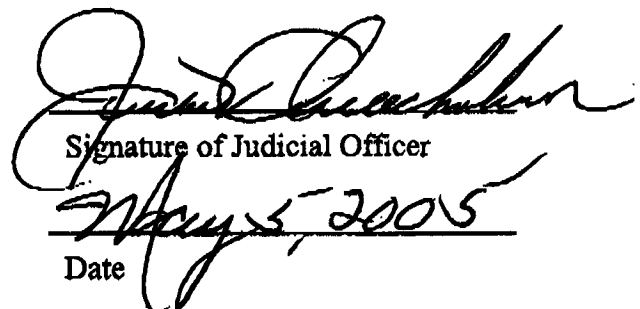 Signature of Judicial Officer
May 5, 2005
Date